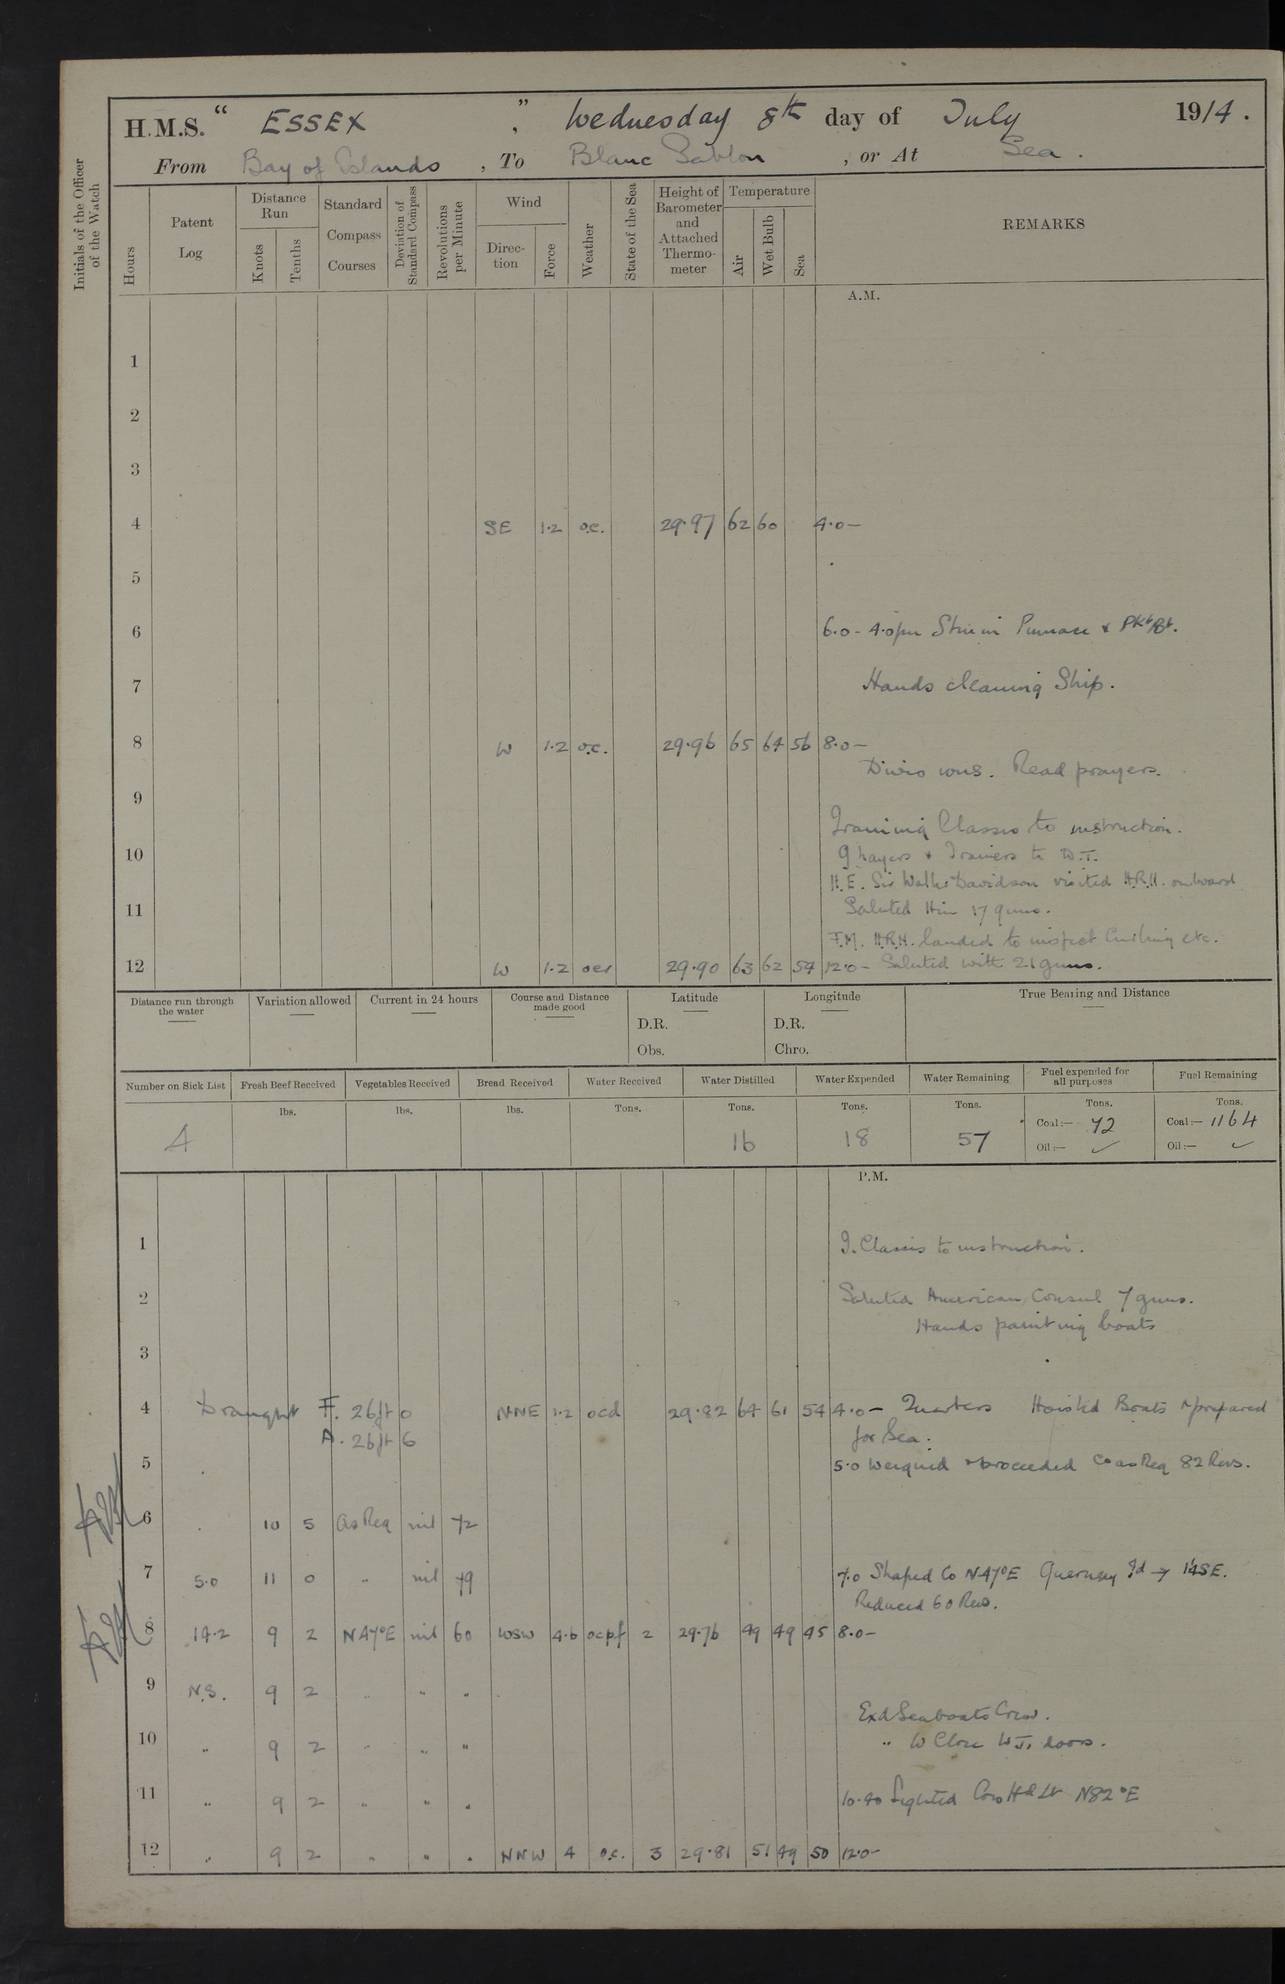 H.M.S. “ ESSEX ” , Wednesday 8th day of July 1914.
From Bay of Islands , To Blanc Sablon , or At Sea .
Initials of the Officer of the Watch
Hours
Patent Log
Distance Run
Knots
Tenths
Standard Compass Courses
Deviation of Standard Compass
Revolutions per Minute
Wind
Direc-tion
Force
Weather
State of the Sea
Height of Barometer and Attached Thermo-meter
Temperature
Air
Wet Bulb
Sea
REMARKS
A.M.
1
2
3
4 SE 1.2 o.c. 29.97 62 60 4.0 —
5
6 6.0 - 4.0pm Steam Pinnace & Pkt Bt.
7 Hands cleaning Ship.
8 W 1.2 o.c. 29.96 65 64 56 8.0 —
Divisions. Read prayers.
9
Training Classes to instruction.
10 Glayers & Trainers to D.T.
H.E. Sir Walter Davidson visited H.R.H. onboard
11 Saluted Him 17 guns.
F.M. H.R.H. landed to inspect Curling etc.
12 W 1.2 oer 29.90 63 62 54 12.0 — Saluted with 21 guns.
Distance run through the water
Variation allowed
Current in 24 hours
Course and Distance made good
Latitude
D.R.
Obs.
Longitude
D.R.
Chro.
True Bearing and Distance
Number on Sick List
Fresh Beef Received
Vegetables Received
Bread Received
Water Received
Water Distilled
Water Expended
Water Remaining
Fuel expended for all purposes
Fuel Remaining
lbs. lbs. lbs. Tons. Tons. Tons. Tons. Tons. Tons.
4 16 18 57 Coal:— 42 Coal:— 1164
Oil:— ✓ Oil:— ✓
P.M.
1 T. Classes to instruction.
2 Saluted American Consul 7 guns.
Hands painting boats
3
4 Draught F. 26ft 0 NNE 1.2 ocd 29.82 64 61 54 4.0 — Quarters Hoisted Boats & prepared
A. 26ft 6 for Sea.
5 5.0 Weighed & proceeded Co as Req 82 Revs.
6 10 5 As Req nil 72
7 5.0 11 0 " nil 79 7.0 Shaped Co N47°E Guernsey Id → 1'4 SE.
Reduced 60 Revs.
8 14.2 9 2 N47°E nil 60 WSW 4.6 ocpf 2 29.76 49 49 45 8.0 —
9 N.S. 9 2 " " "
Exd Seaboats Crew.
10 " 9 2 " " " " to Close W.T. doors.
11 " 9 2 " " " 10.40 Sighted Cow Hd Lt N82°E
12 " 9 2 " " " NNW 4 o.c. 3 29.81 51 49 50 12.0 —